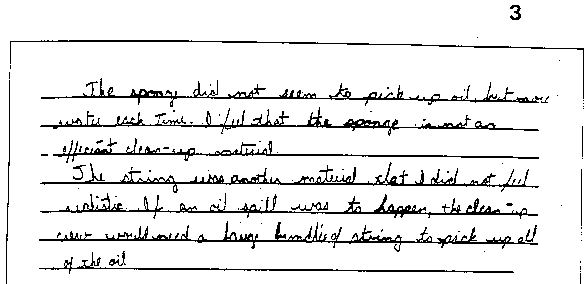 3
The sponge did not seem to pick up oil, but more
water each time. I feel that the sponge is not an
efficient clean-up material
The string was another material that I did not feel
realistic. If an oil spill was to happen, the clean-up
crew would need a huge bundle of string to pick up all
of the oil